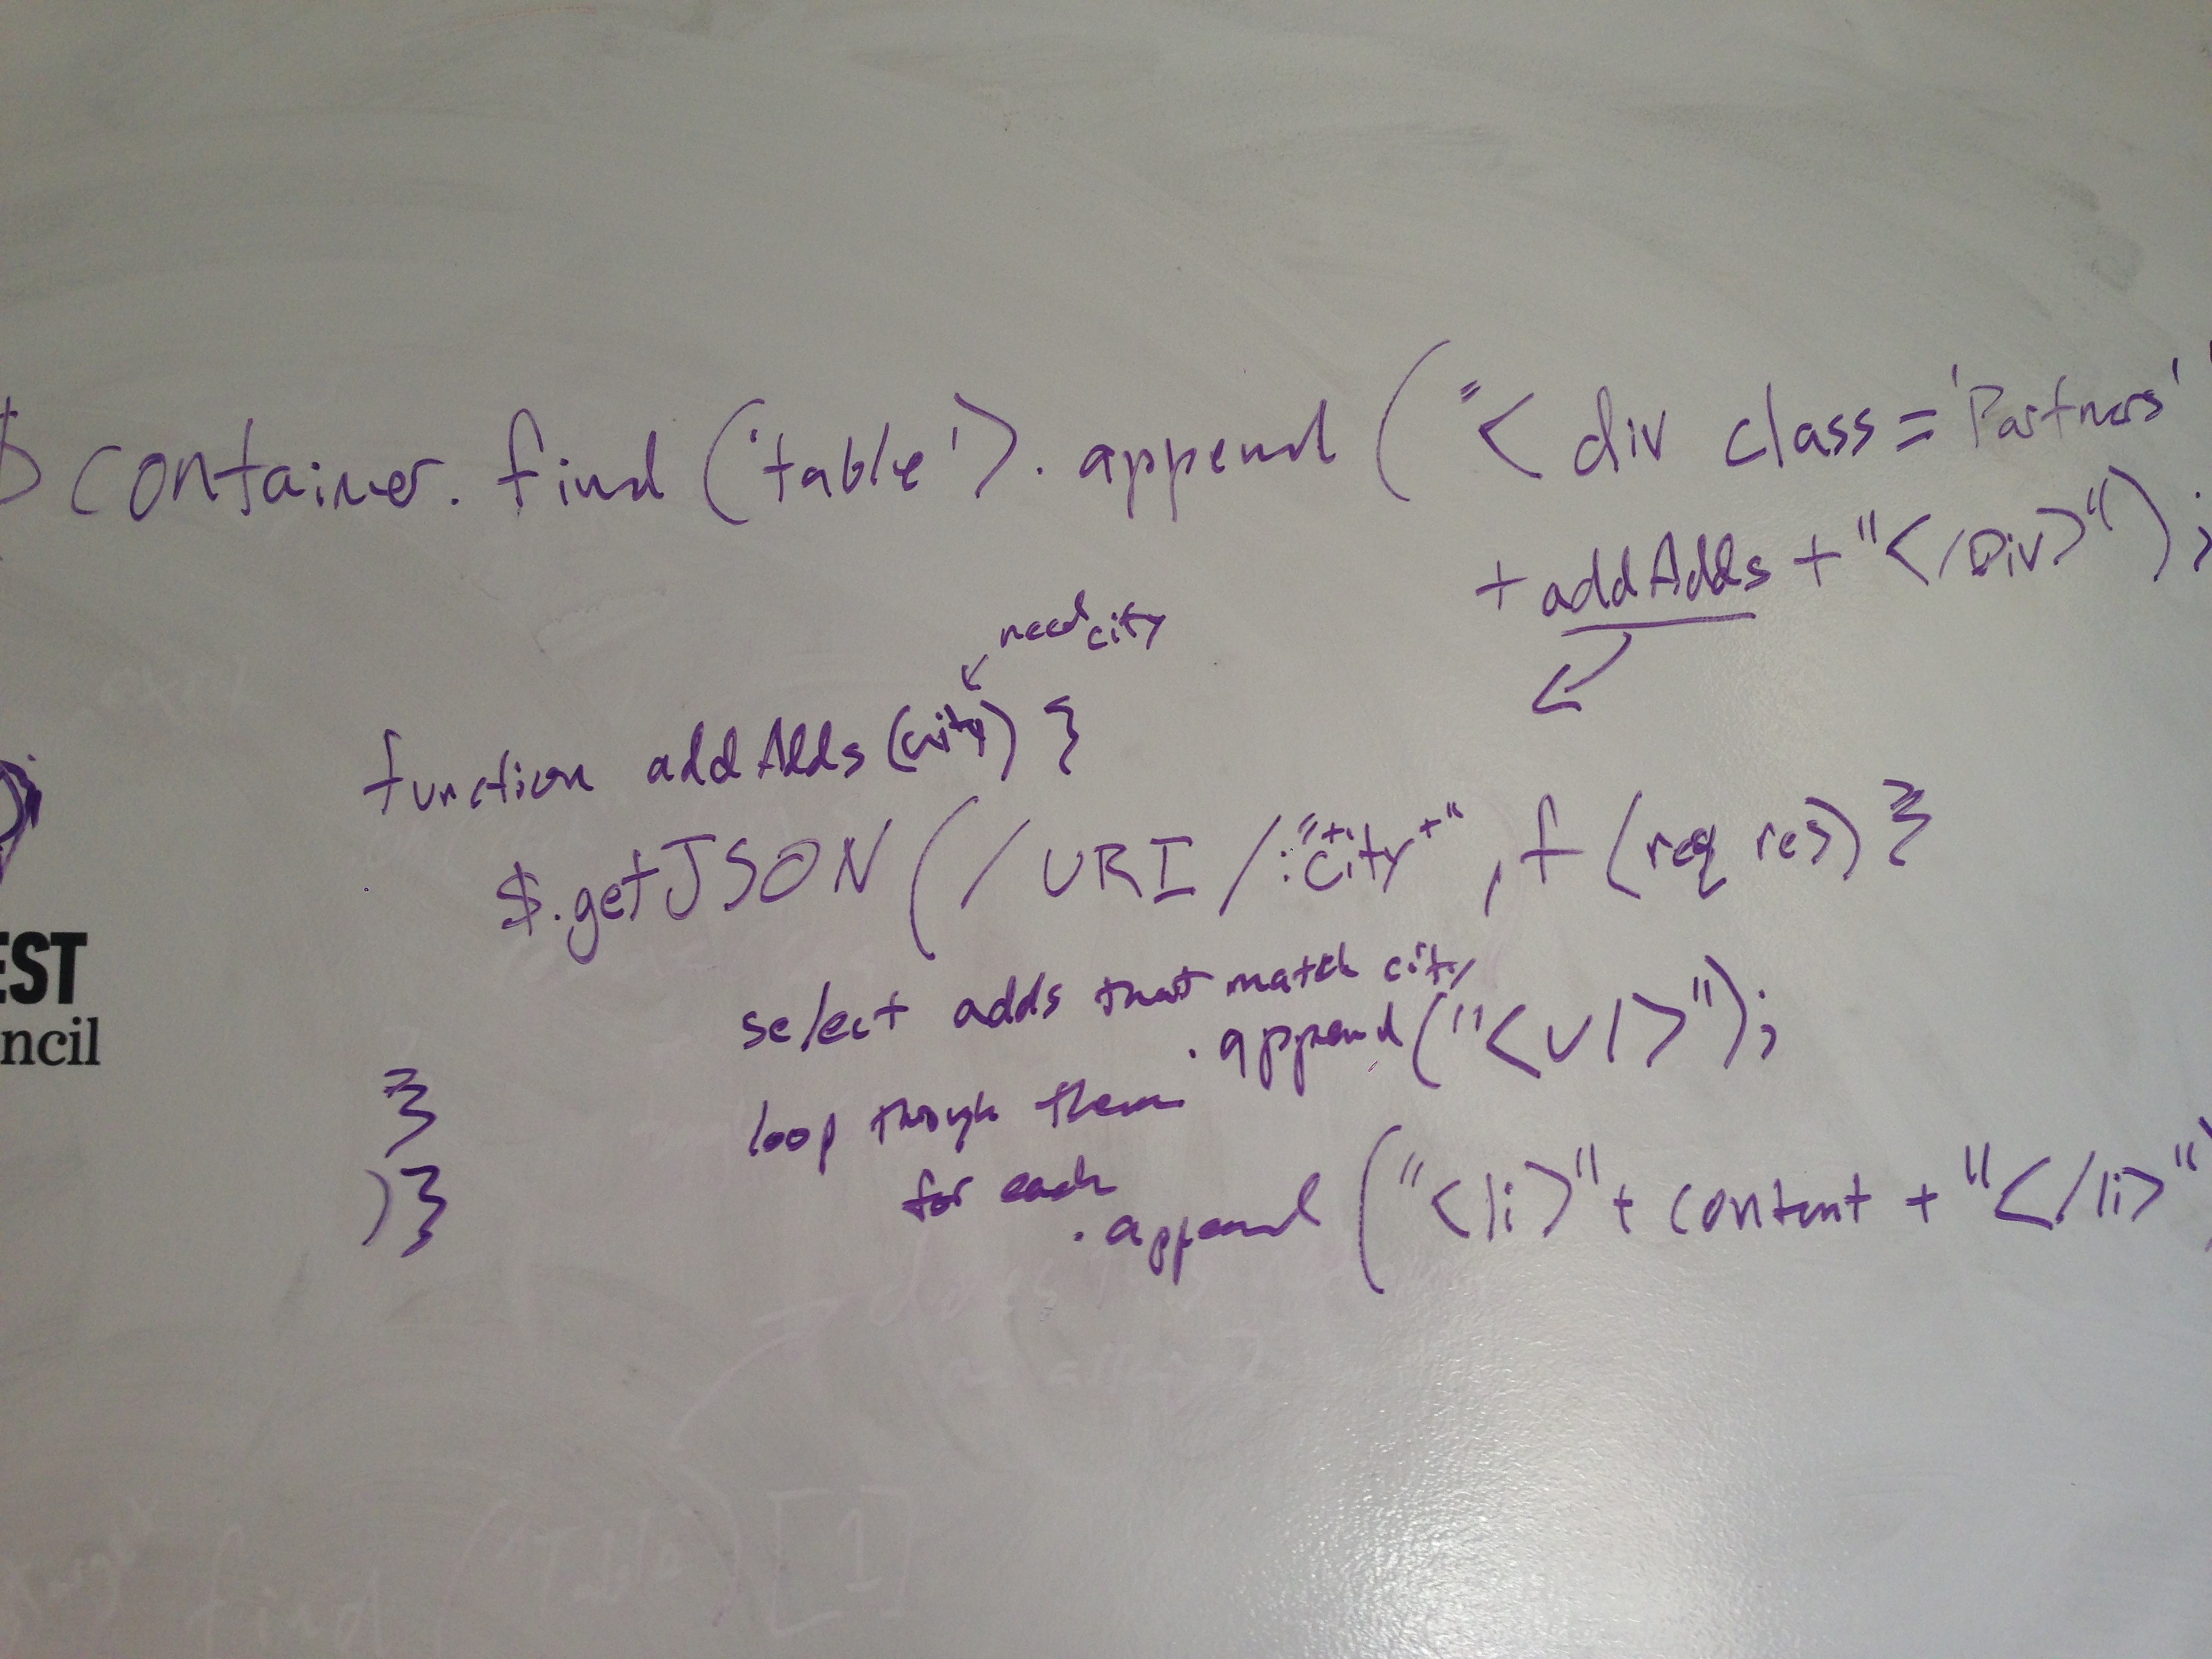 $container.find('table').append("<div class='Partners'"
+ addAdds + "</Div>");
need city
function addAdds(city) {
$.getJSON(/URI/:"+city+", f(req res) {
select adds that match city
.append("<ul>");
loop though them
for each
.append("<li>" + content + "</li>")
}
)}
EST
ncil
find ("Table") [1]